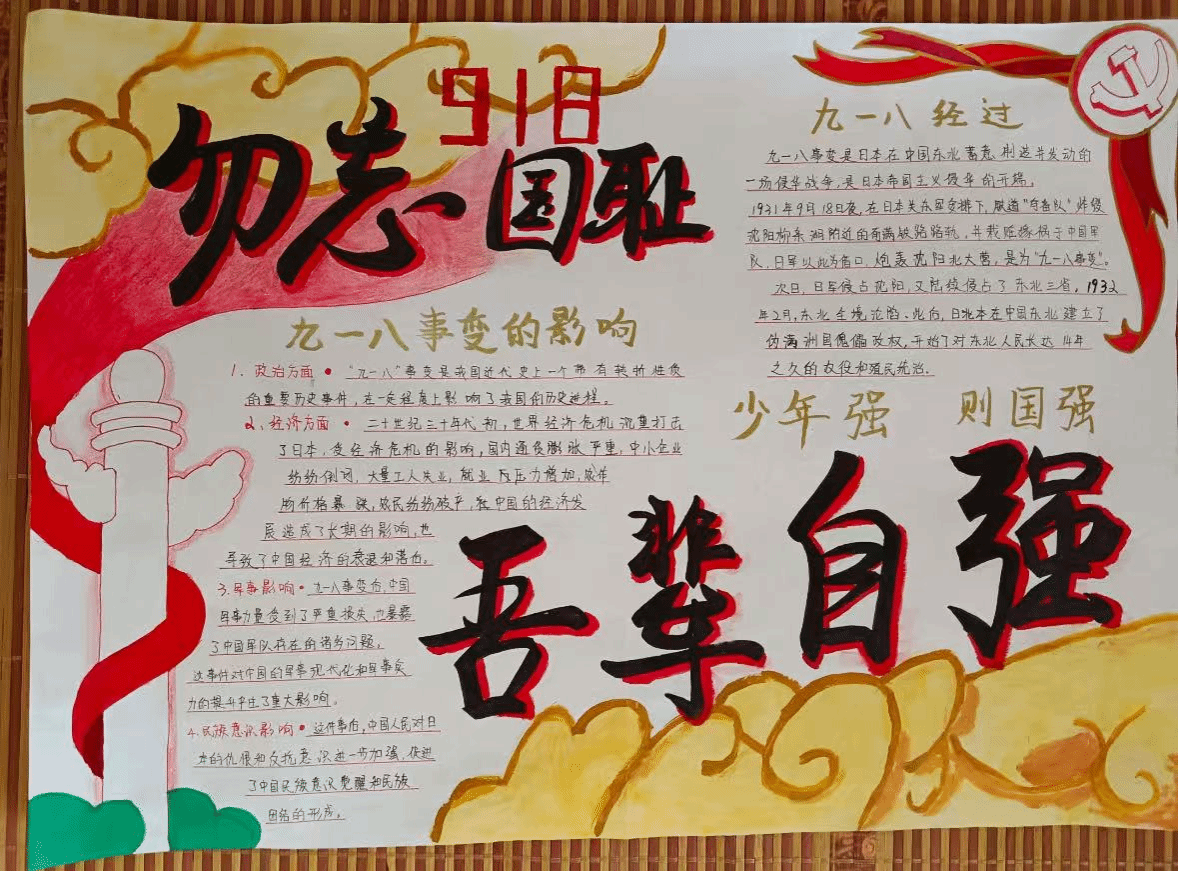 918
勿忘国耻
九一八事变的影响
1. 政治方面 • "九一八"事变是我国近代史上一个带有转折性质
的重要历史事件,在一定程度上影响了我国的历史进程。
2、经济方面 • 二十世纪三十年代初,世界经济危机沉重打击
了日本,受经济危机的影响,国内通货膨胀严重,中小企业
纷纷倒闭,大量工人失业,就业压力增加,农作
物价格暴跌,农民纷纷破产,在中国的经济发
展造成了长期的影响,也
导致了中国经济的衰退和落伯。
3.军事影响 • 九一八事变后,中国
军事力量受到了严重损失,也暴露
了中国军队存在的诸多问题,
这事件对中国的军事现代化和军事实
力的提升产生了重大影响。
4.民族意识影响 • 这件事后,中国人民对日
本的仇恨和反抗意识进一步加强,促进
了中国民族意识觉醒和民族
团结的形成。
九一八经过
九一八事变是日本在中国东北蓄意制造并发动的
一场侵华战争,是日本帝国主义侵华的开端。
1931年9月18日夜,在日本关东军安排下,铁道"守备队"炸毁
沈阳柳条湖附近的南满铁路路轨,并栽赃嫁祸于中国军
队,日军以此为借口,炮轰沈阳北大营,是为"九一八事变"。
次日,日军侵占沈阳,又陆续侵占了东北三省。1932
年2月,东北全境沦陷。此后,日本在中国东北建立了
伪满洲国傀儡政权,开始了对东北人民长达14年
之久的奴役和殖民统治。
少年强 则国强
吾辈自强